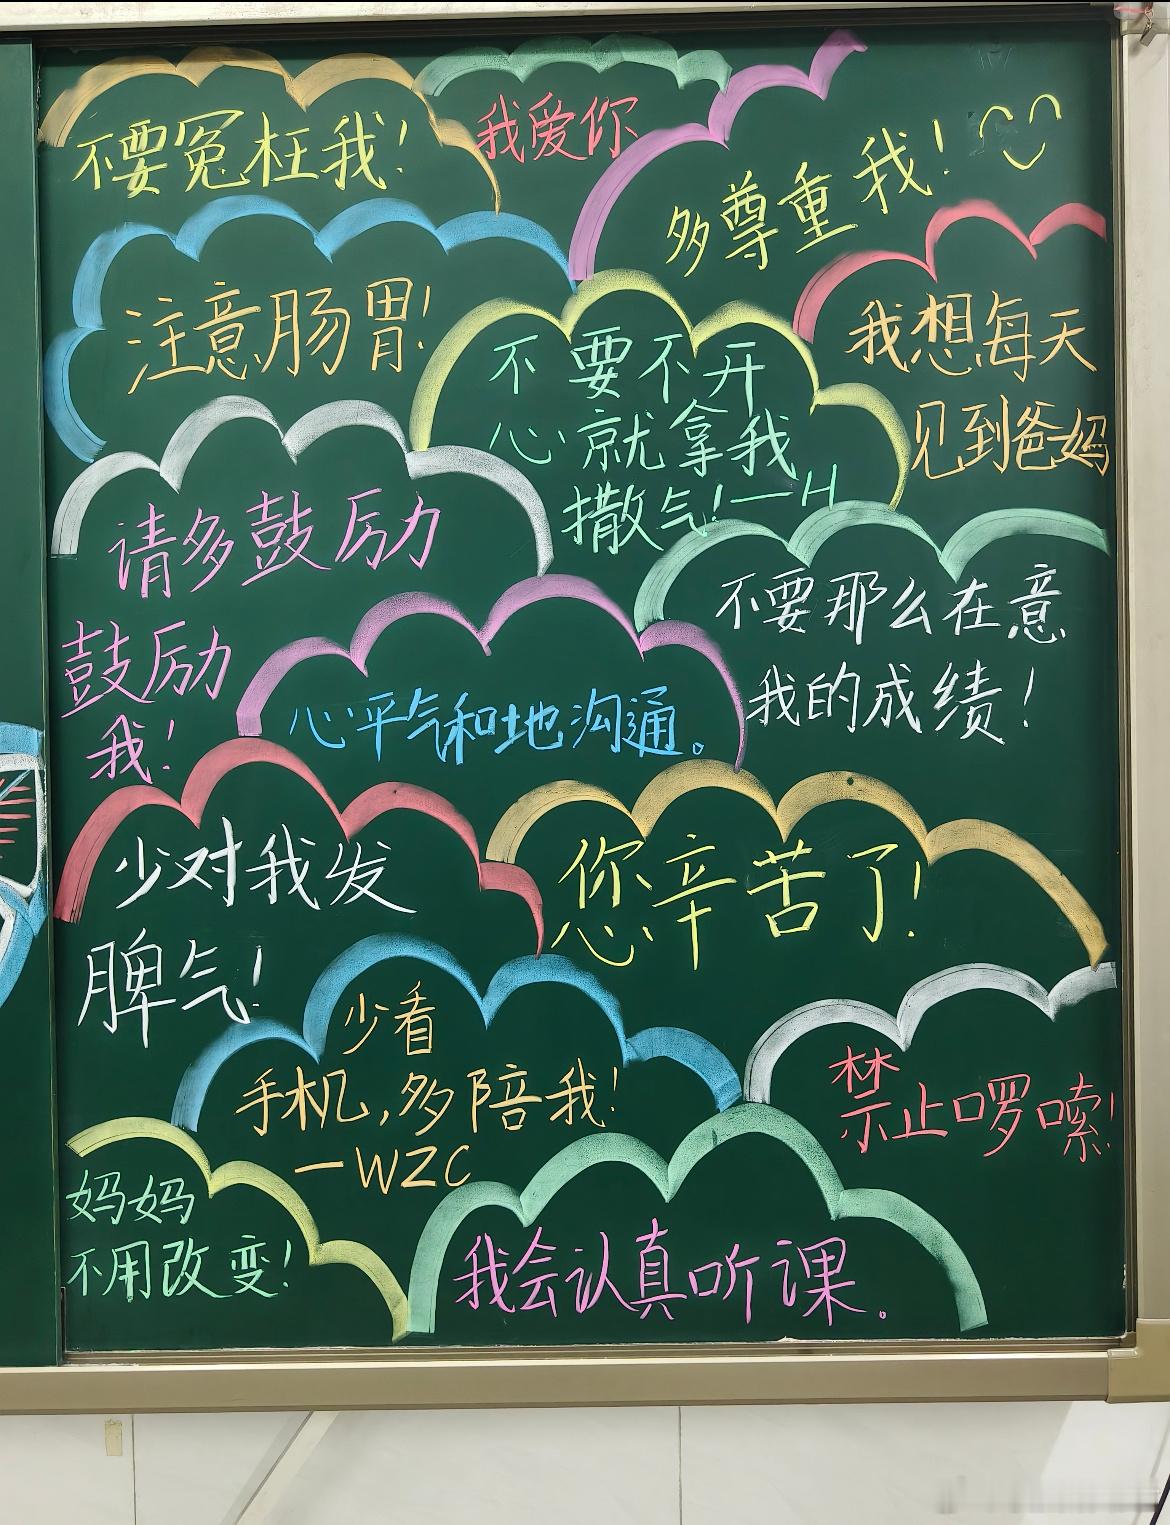 不要冤枉我!
我爱你
多尊重我!
注意肠胃!
不要不开
心就拿我
撒气!—H
我想每天
见到爸妈
请多鼓厉
鼓厉
我!
不要那么在意
我的成绩!
心平气和地沟通。
少对我发
脾气!
您辛苦了!
少看
手机,多陪我!
—WZC
禁止啰嗦!
妈妈
不用改变!
我会认真听课。